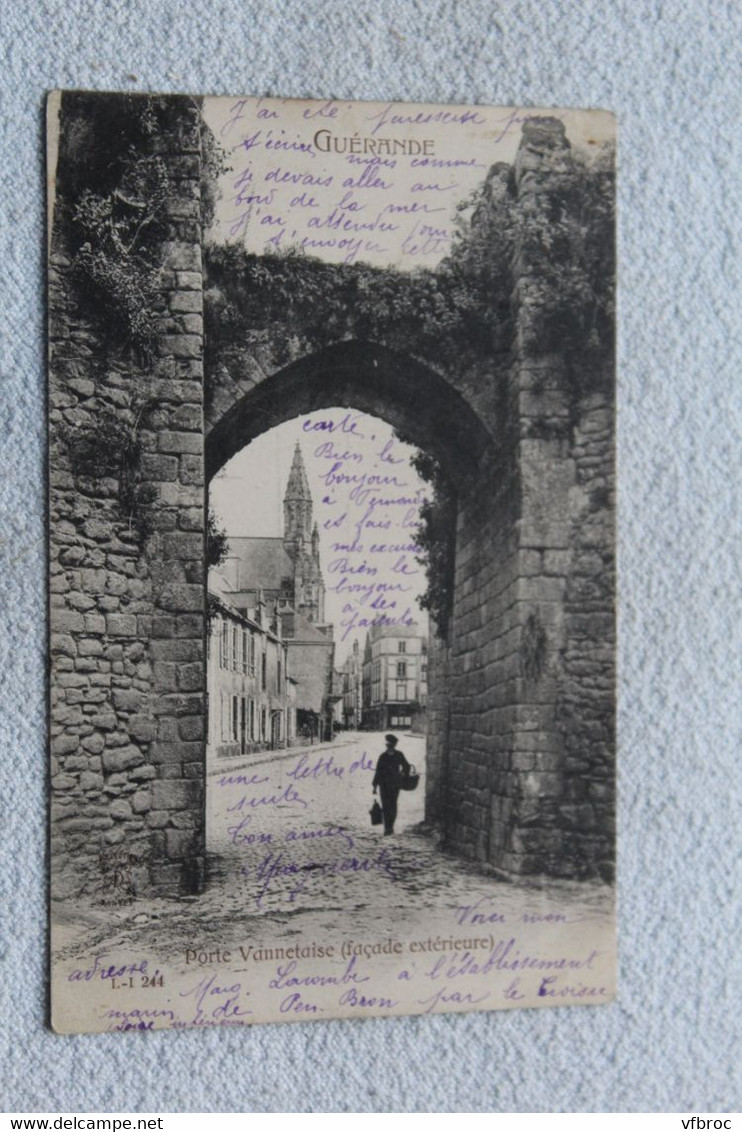 J'ai été paresseuse pour
GUÉRANDE
t'écrire
mais comme
je devais aller au
bord de la mer
j'ai attendu pour
t'envoyer cette
carte.
Bien le
bonjour
à Fernand
et fais-lui
mes excuses
Bien le
bonjour
à tes
parents
une lettre de
suite
ton amie
Voici mon
Porte Vannetaise (façade extérieure)
adresse
L-I 244
Marg. Lacombe à l'établissement
marin de Pen. Bron par le Croisic
(Loire inférieure)
vfbroc
www.delcampe.net